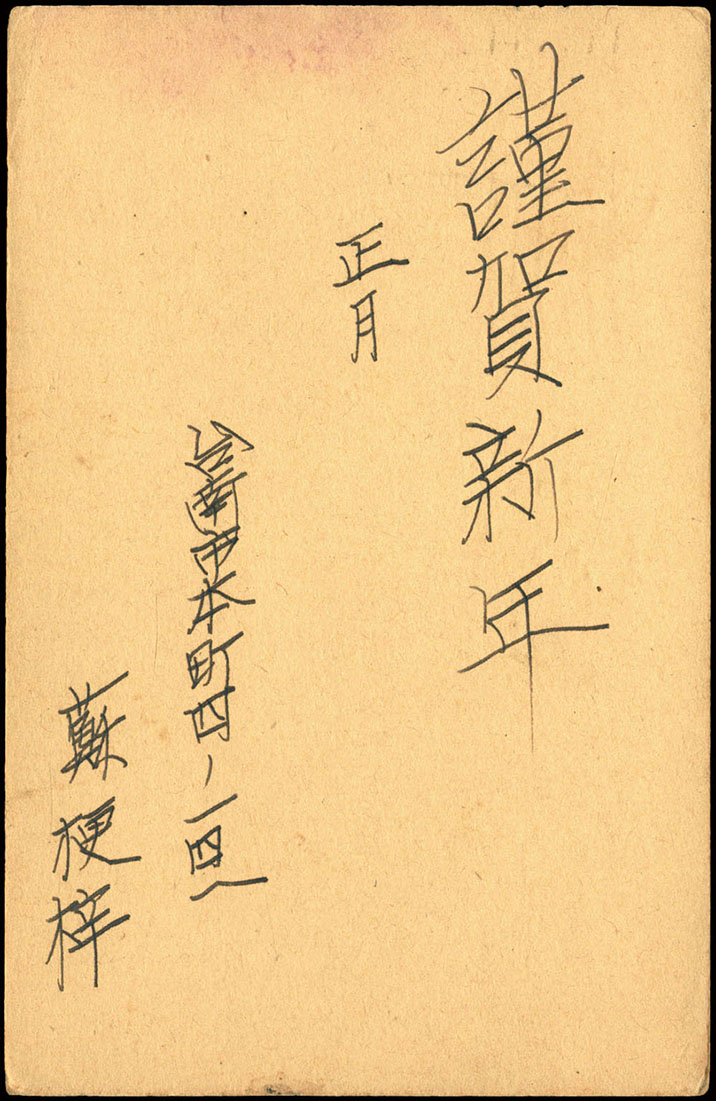 謹賀新年
正月
台南市本町四ノ一四一
蘇梗梓